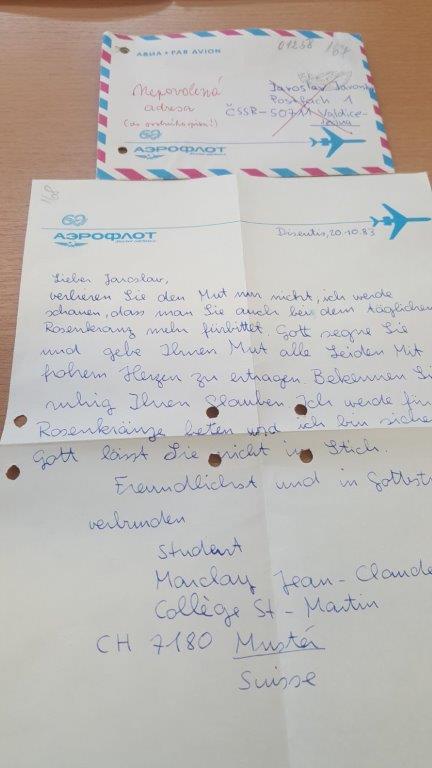 АВИА • PAR AVION
01258 /67
Nepovolená
adresa
Jaroslav
Postfach 1
ČSSR-50711 Valdice
60
АЭРОФЛОТ
Soviet airlines
168
60
АЭРОФЛОТ
Soviet airlines
Disentis, 20.10.83
Lieber Jaroslaw,
verlieren Sie den Mut nur nicht, ich werde
schauen, dass man Sie auch bei dem täglichen
Rosenkranz mehr fürbittet. Gott segne Sie
und gebe Ihnen Mut alle Leiden Mit
frohem Herzen zu ertragen. Bekennen Si
ruhig Ihnen Glauben Ich werde für
Rosenkränze beten und ich bin sicher
Gott lässt Sie nicht in Stich.
Freundlichst und in Gottes
verbunden
Student
Marclay Jean-Claude
Collège St-Martin
CH 7180 Mustér
Suisse